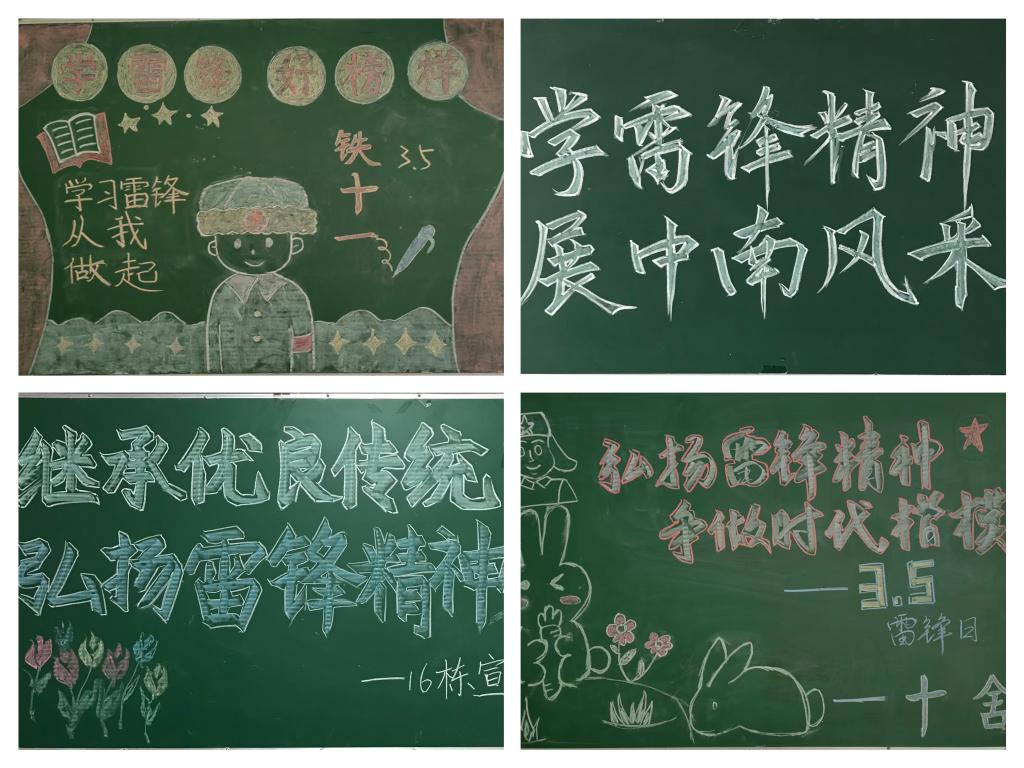 学雷锋好榜样
铁十一
3.5
学习雷锋
从我
做起
学雷锋精神
展中南风采
继承优良传统
弘扬雷锋精神
—16栋宣
弘扬雷锋精神
争做时代楷模
—3.5
雷锋日
—十舍